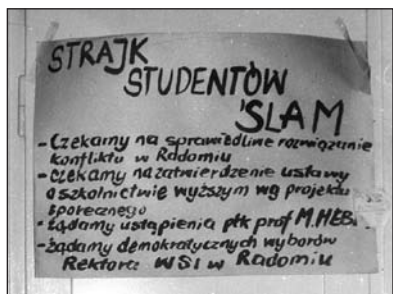 STRAJK
STUDENTÓW
ŚLAM
- Czekamy na sprawiedliwe rozwiązanie
konfliktu w Radomiu
- czekamy na zatwierdzenie ustawy
o szkolnictwie wyższym wg projektu
społecznego
- żądamy ustąpienia płk prof M. HEB
- żądamy demokratycznych wyborów
Rektora WSI w Radomiu